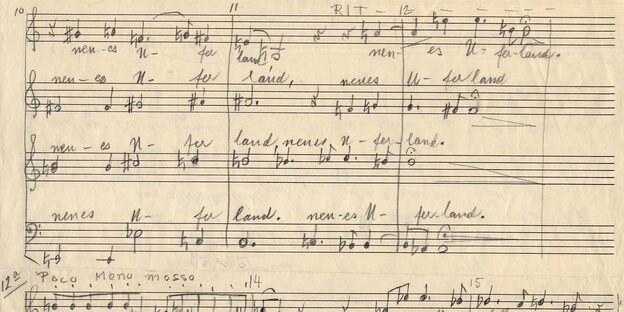 10 11 RIT - - 12 - - - - -
neu-es U- fer land, neu- es U- fer-land.
neu-es U- fer land, neues U- ferland
neu-es U- fer land, neues U-fer-land.
neues U- fer land. neu-es U- fer-land.
12a Poco Meno mosso 14 15